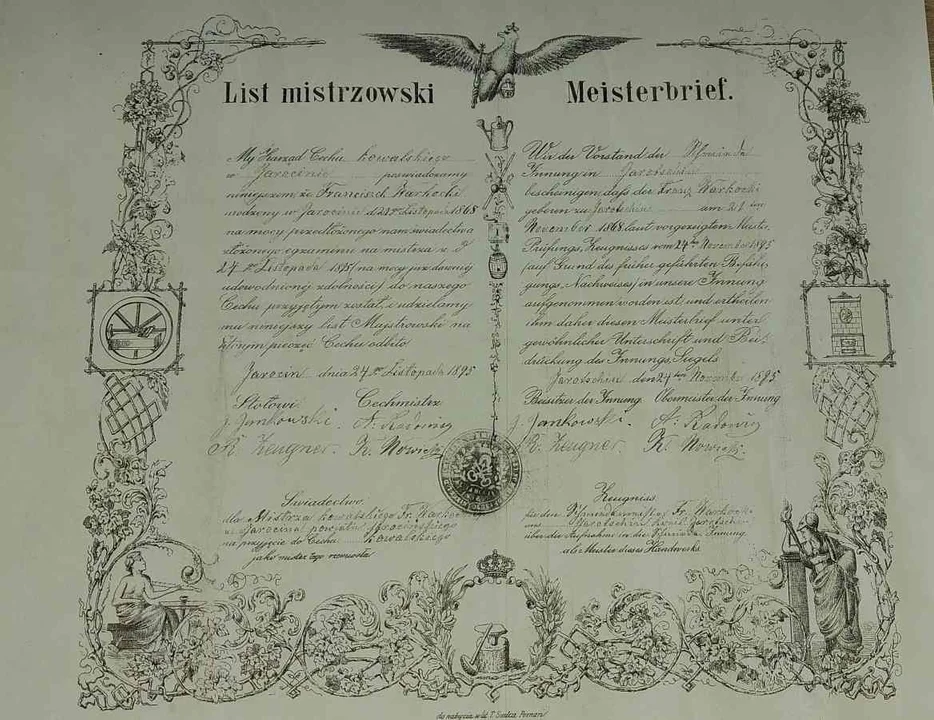 List mistrzowski
My Zarząd Cechu kowalskiego
w Jarocinie poświadczamy
niniejszem, że Franciszek Warkocki
urodzony w Jarocinie d. 21go Listopada 1868
na mocy przedłożonego nam świadectwa
złożonego egzaminu na mistrza z d.
24go Listopada 1895 /na mocy już dawniej
udowodnionej zdolności/ do naszego
Cechu przyjętym został, i udzielamy
mu niniejszy List Majstrowski na
którym pieczęć Cechu odbito
Jarocin dnia 24go Listopada 1895
Stołowi Cechmistrz
J. Jankowski. A. Radowicz
R. Zeugner. R. Nowicki
Świadectwo
dla Mistrza kowalskiego Fr. Warkockiego
w Jarocinie powiatu Jarocińskiego
na przyjęcie do Cechu kowalskiego
jako mistrz tego rzemiosła
Meisterbrief.
Wir der Vorstand der Schmiede
Innung in Jarotschin
bescheinigen, daß der Franz Warkocki
geboren zu Jarotschin am 21ten
November 1868 laut vorgezeigtem Meister
Prüfungs Zeugnisses vom 24ten November 1895
/auf Grund des früher geführten Befähi-
gungs Nachweises/ in unsere Innung
aufgenommen worden ist, und ertheilen
ihm daher diesen Meisterbrief unter
gewöhnlicher Unterschrift und Bei-
drückung des Innungs Siegels
Jarotschin den 24ten November 1895
Beisitzer der Innung Obermeister der Innung
J. Jankowski. A. Radowicz
R. Zeugner. R. Nowicki.
Zeugniss
für den Schmiedemeister Fr. Warkocki
aus Jarotschin Kreis Jarotschin
über die Aufnahme in die Schmiede Innung
als Meister dieses Handwerks
do nabycia w lit. T. Poznań